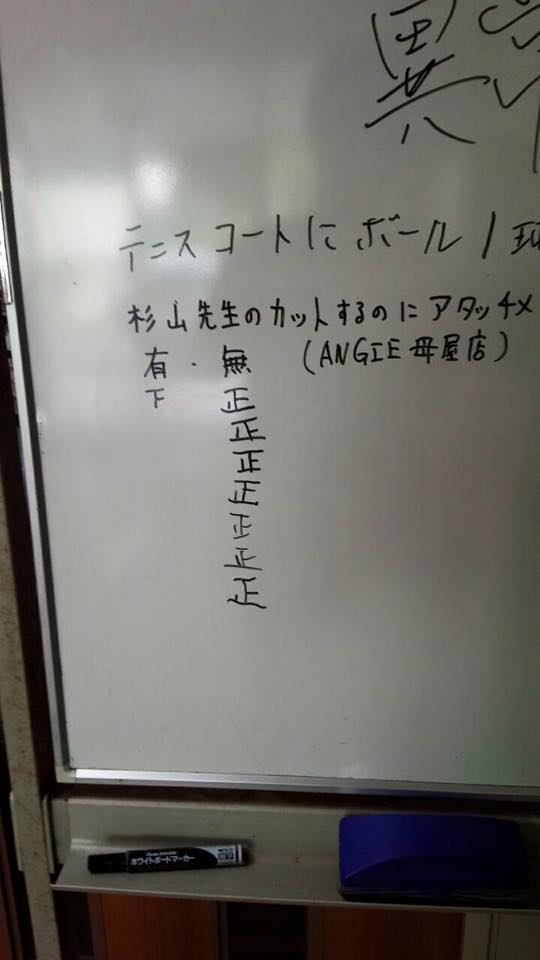 異常
テニスコートにボール1球
杉山先生のカットするのにアタッチメ
有・無 (ANGIE母屋店)
下 正
正
正
正
正
正
正
ホワイトボードマーカー